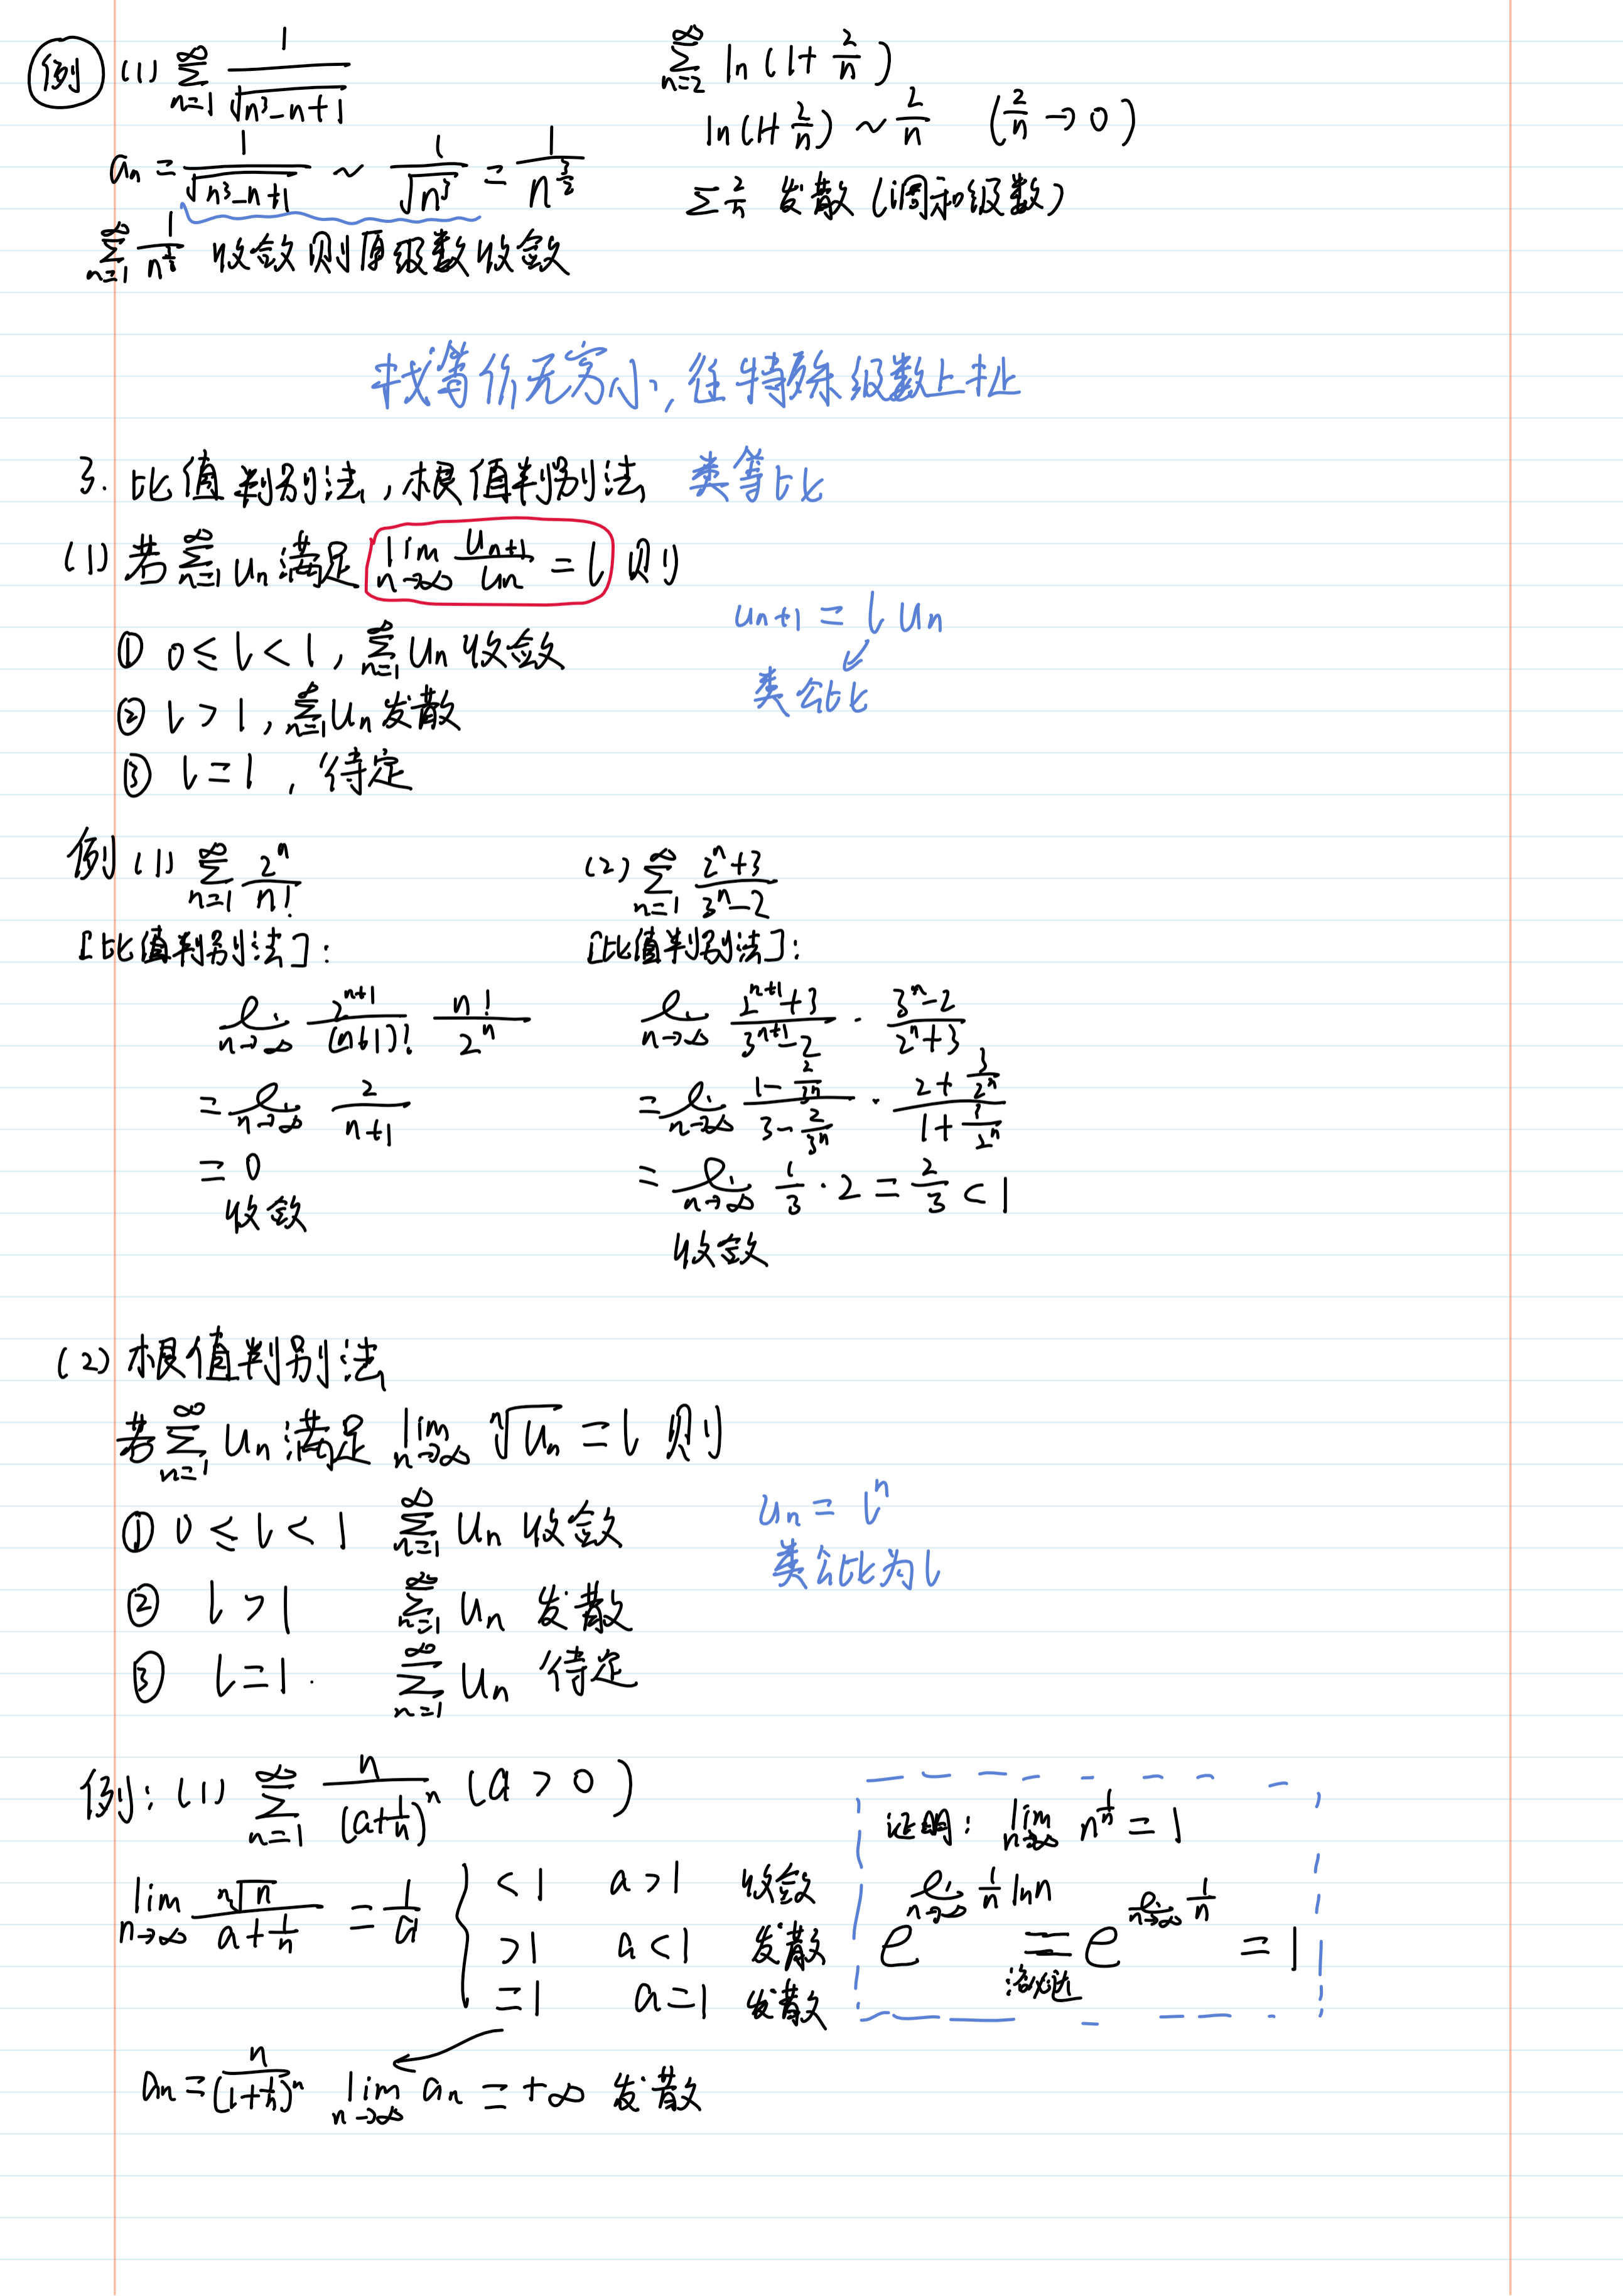 例 (1) ∑_{n=1}^{∞} 1/√(n³-n+1)
a_n = 1/√(n³-n+1) ~ 1/√(n³) = 1/n^{3/2}
∑_{n=1}^{∞} 1/n^{3/2} 收敛则原级数收敛
∑_{n=2}^{∞} ln(1+2/n)
ln(1+2/n) ~ 2/n (2/n→0)
∑2/n 发散(调和级数)
找等价无穷小,往特殊级数上扯
3. 比值判别法,根值判别法 类等比
(1) 若∑_{n=1}^{∞} u_n 满足 lim_{n→∞} u_{n+1}/u_n = l 则
① 0≤l<1, ∑_{n=1}^{∞} u_n 收敛
② l>1, ∑_{n=1}^{∞} u_n 发散
③ l=1, 待定
u_{n+1} = l u_n
类公比
例 (1) ∑_{n=1}^{∞} 2^n/n!
[比值判别法]:
lim_{n→∞} 2^{n+1}/(n+1)! n!/2^n
= lim_{n→∞} 2/(n+1)
= 0
收敛
(2) ∑_{n=1}^{∞} (2^n+3)/(3^n-2)
[比值判别法]:
lim_{n→∞} (2^{n+1}+3)/(3^{n+1}-2) · (3^n-2)/(2^n+3)
= lim_{n→∞} (1-2/3^n)/(3-2/3^n) · (2+3/2^n)/(1+3/2^n)
= lim_{n→∞} 1/3 · 2 = 2/3 < 1
收敛
(2) 根值判别法
若∑_{n=1}^{∞} u_n 满足 lim_{n→∞} ⁿ√u_n = l 则
① 0≤l<1 ∑_{n=1}^{∞} u_n 收敛
② l>1 ∑_{n=1}^{∞} u_n 发散
③ l=1. ∑_{n=1}^{∞} u_n 待定
u_n = l^n
类公比为l
例: (1) ∑_{n=1}^{∞} n/(a+1/n)^n (a>0)
lim_{n→∞} ⁿ√n/(a+1/n) = 1/a
<1 a>1 收敛
>1 a<1 发散
=1 a=1 发散
a_n = n/(1+1/n)^n lim_{n→∞} a_n = +∞ 发散
证明: lim_{n→∞} n^{1/n} = 1
e^{lim_{n→∞} 1/n ln n} = e^{lim_{n→∞} 1/n} = 1
洛必达